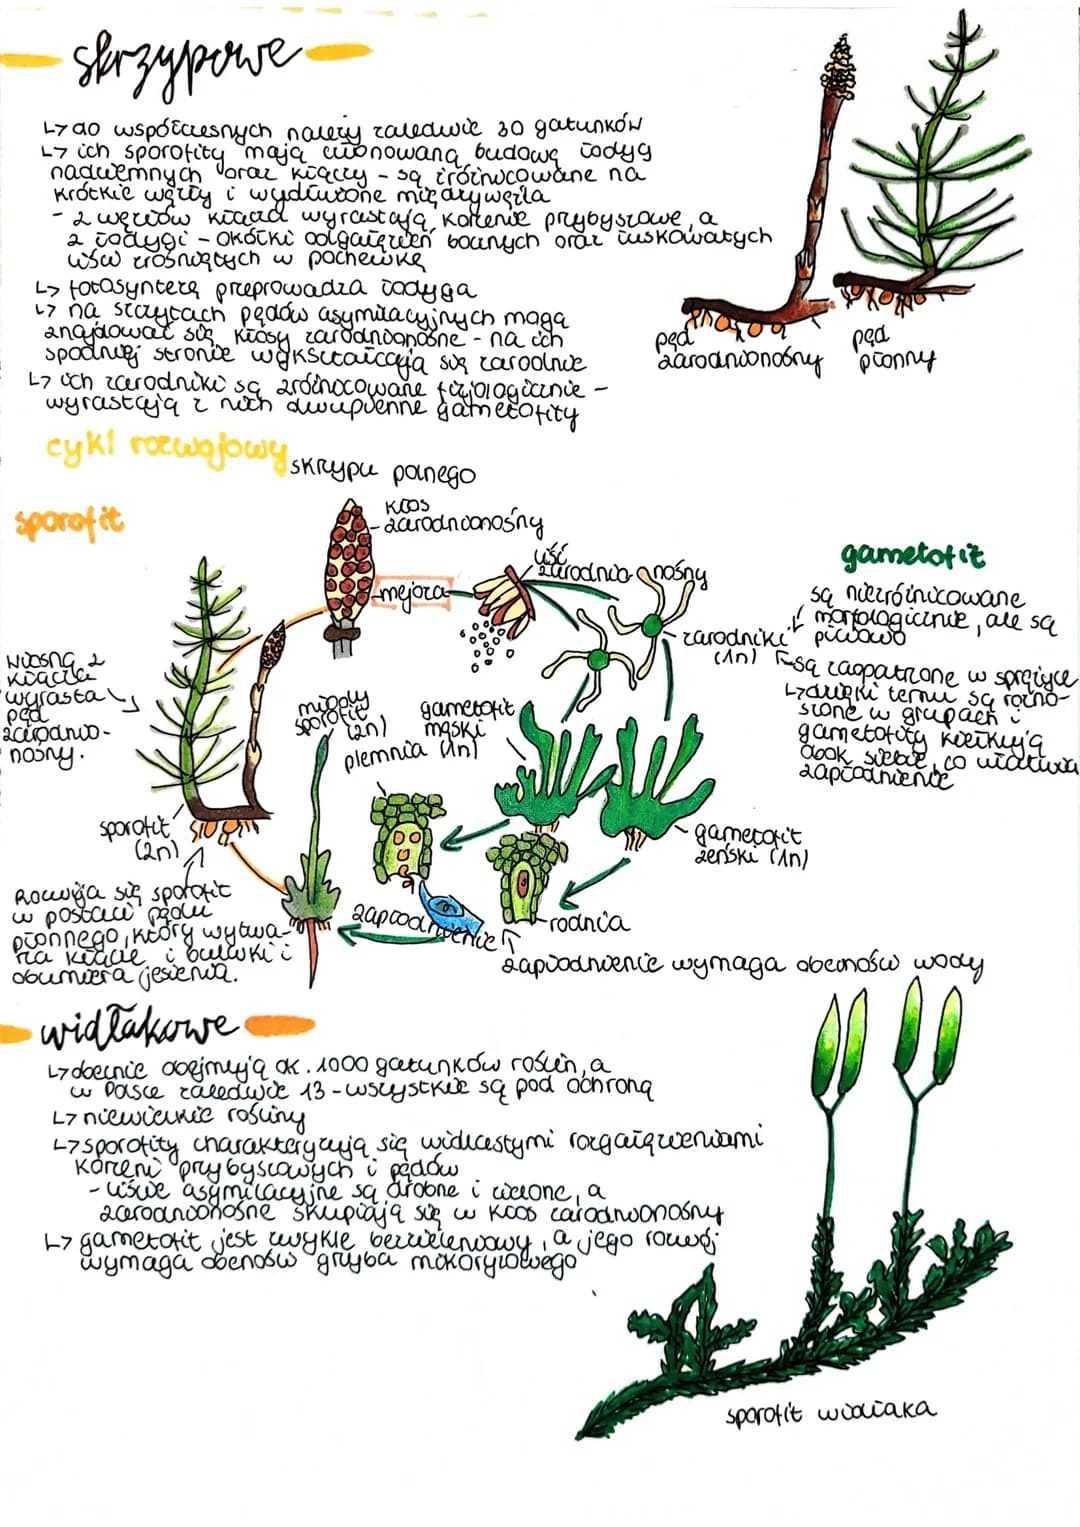 skrzypowe
↳ do współczesnych należy zaledwie 30 gatunków
↳ ich sporofity mają członowaną budowę łodyg
nadziemnych oraz kłączy - są zróżnicowane na
krótkie węzły i wydłużone międzywęźla
- z węzłów kłącza wyrastają korzenie przybyszowe, a
z łodygi - okółki odgałęzień bocznych oraz łuskowatych
liści zrośniętych w pochewkę
↳ fotosyntezę przeprowadza łodyga
↳ na szczytach pędów asymilacyjnych mogą
znajdować się kłosy zarodnionośne - na ich
spodniej stronie wykształcają się zarodnie
↳ ich zarodniki są zróżnicowane fizjologicznie -
wyrastają z nich dwupienne gametofity
pęd
zarodnionośny
pęd
płonny
cykl rozwojowy skrzypu polnego
sporofit
kłos
zarodnionośny
mejoza
liść
zarodnionośny
gametofit
są niezróżnicowane
morfologicznie, ale są
płciowo
zarodniki
(1n)
są zaopatrzone w sprężyce
↳ dzięki temu są rozno-
szone w grupach i
gametofity kiełkują
obok siebie, co ułatwia
zapłodnienie
wiosną z
kłącza
wyrasta
pęd
zarodnio-
nośny.
młody
sporofit
(2n)
gametofit
męski
(1n)
plemnia
sporofit
(2n)
gametofit
żeński (1n)
Rozwija się sporofit
w postaci pędu
płonnego, który wytwa-
rza kłącze i bulwki i
obumiera jesienią.
zapłodnienie
rodnia
zapłodnienie wymaga obecności wody
widłakowe
↳ obecnie obejmują ok. 1000 gatunków roślin, a
w Polsce zaledwie 13 - wszystkie są pod ochroną
↳ niewielkie rośliny
↳ sporofity charakteryzują się widlastymi rozgałęzieniami
korzeni przybyszowych i pędów
- liście asymilacyjne są drobne i zielone, a
zarodnionośne skupiają się w kłos zarodnionośny
↳ gametofit jest zwykle bezzieleniowy, a jego rozwój
wymaga obeności grzyba mikoryzowego
sporofit widłaka